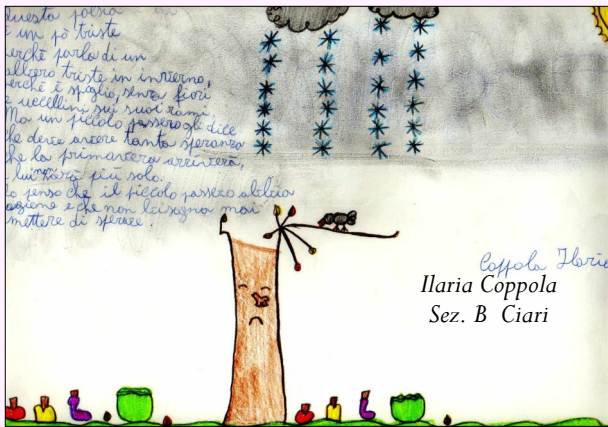 questa poesia
è un pò triste
perchè parla di un
albero triste in inverno,
perchè è spoglio, senza fiori
e uccellini sui suoi rami.
Ma un piccolo passero gli dice
che deve avere tanta speranza
che la primavera arriverà,
lui non sarà più solo.
Io penso che il piccolo passero abbia
ragione e che non bisogna mai
smettere di sperare.
Coppola Ilaria
Ilaria Coppola
Sez. B Ciari